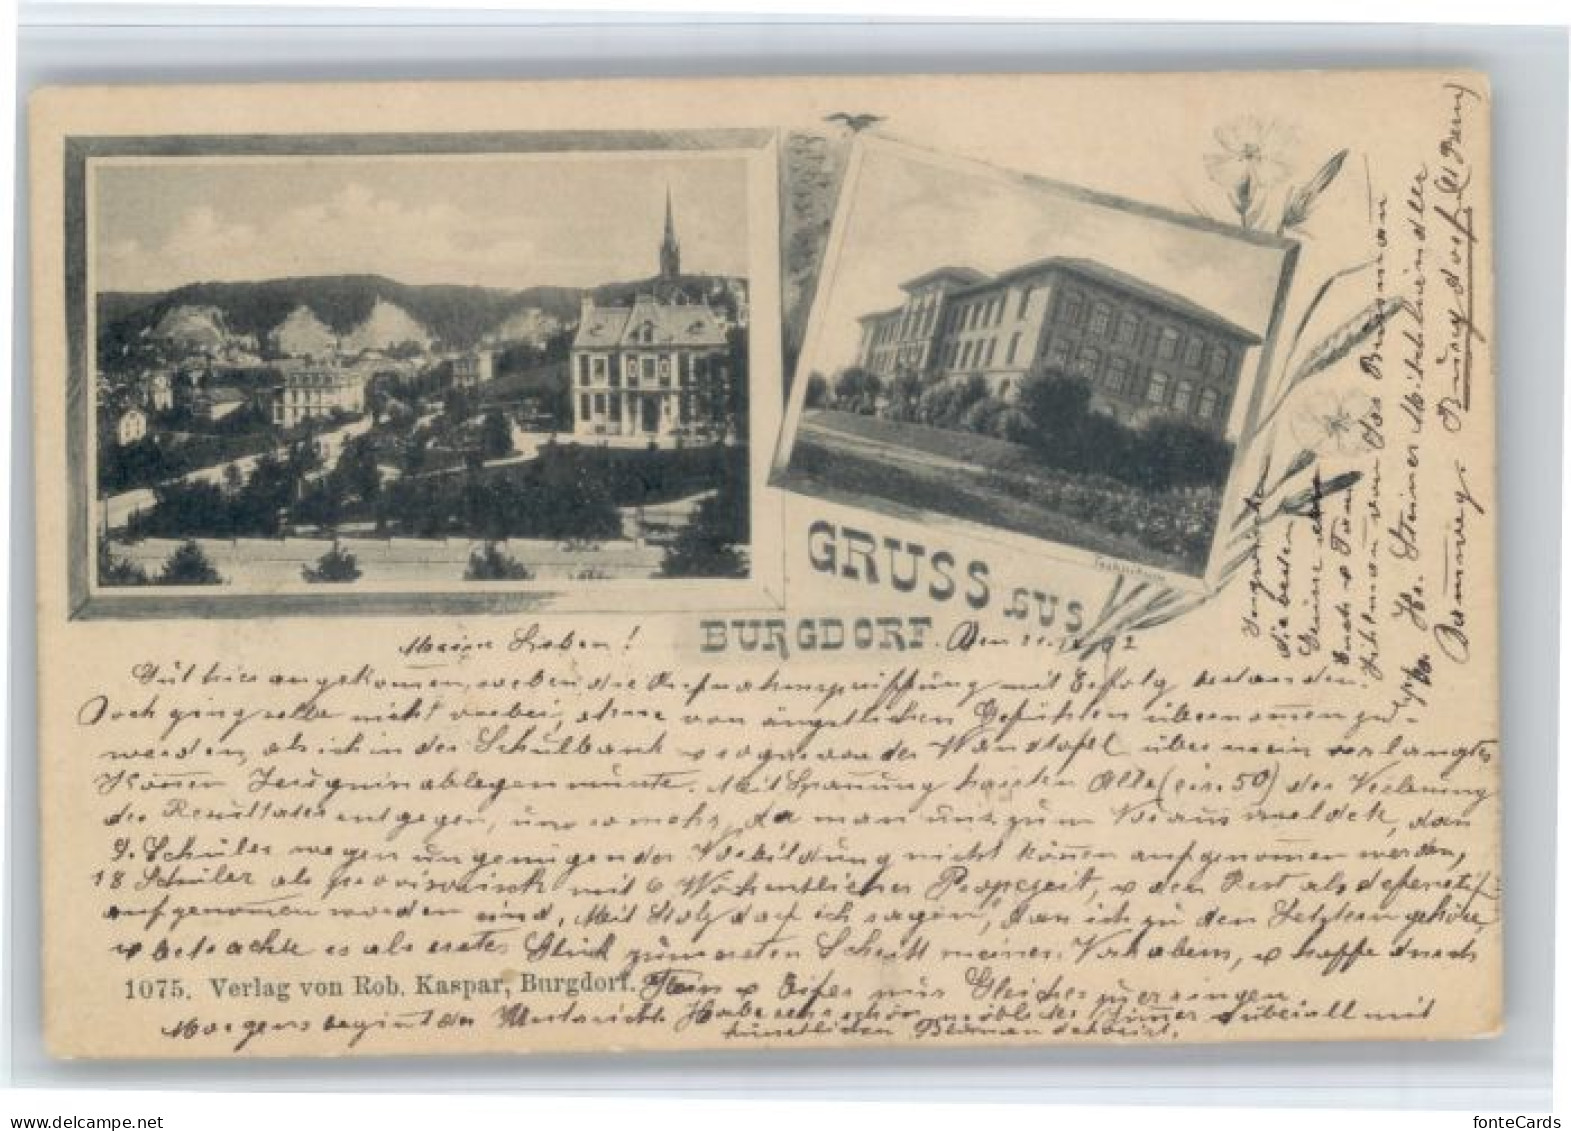 Technikum
GRUSS AUS
BURGDORF.
Meine Lieben!
Gut hier angekommen, habe die Aufnahmsprüfung mit Erfolg bestanden.
Doch ging selbe nicht vorbei, ohne von ängstlichen Gefühlen übernommen zu
werden, als ich in der Schulbank u sogar an der Wandtafel über mein verlangtes
Können Zeugnis ablegen musste. Mit Spannung harrten Alle (cir. 50) der Verlesung
des Resultates entgegen, umso mehr, da man uns zum Voraus meldete, dass
9. Schüler wegen ungenügender Vorbildung nicht können aufgenommen werden,
18 Schüler als provisorisch mit 6 Wöchentlicher Probezeit, u der Rest als definitif
aufgenommen worden sind. Mit Stolz darf ich sagen, dass ich zu den Letztern gehöre,
u betrachte es als erstes Glück zum ersten Schritt meines Vorhabens, u hoffe durch
1075. Verlag von Rob. Kaspar, Burgdorf.
Fleiss u Eifer nur Gleiches zu erringen.
Morgens beginnt der Unterricht. Habe sehr schön möbliertes Zimmer überall mit
künstlichen Blumen dekoriert.
die beiden
Hr. Steiner Milchhändler
Burgdorf (Ct Bern)